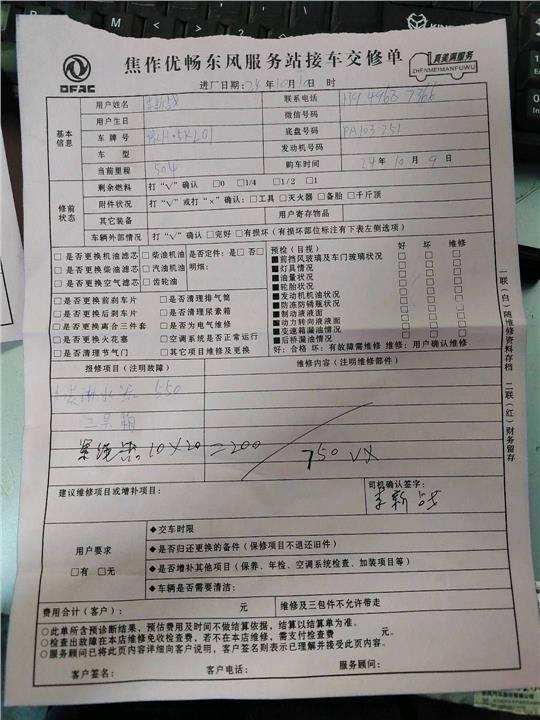 焦作优畅东风服务站接车交修单
DFAC
真美满服务
ZHENMEIMANFUWU
进厂日期：24年10月10日 时
基本信息
用户姓名 李新战 联系电话
用户生日 微信号码
车牌号 底盘号码 PA103251
车型 发动机号码
当前里程 504 购车时间 24年10月9日
修前状态
剩余燃料 打“√”确认 □0 □1/4 □1/2 □1
附件状况 打“√”或打“×”确认：□工具 □灭火器 □备胎 □千斤顶
其它装备 用户寄存物品
车辆外部情况 打“√”确认 □完好 □有损坏（有损坏部位标注有下表左侧选项）
□是否更换机油滤芯 □柴油机油 是否定件：是□ 否□
□是否更换柴油滤芯 □汽油机油 明细：
□是否更换空气滤芯 □齿轮油
□是否更换前刹车片 □是否清理排气筒
□是否更换后刹车片 □是否清理尿素箱
□是否更换离合三件套 □是否为电气维修
□是否更换火花塞 □空调系统是否正常运行
□是否清理节气门 □其它项目维修及更换
预检（目视） 好 坏 维修
■前挡风玻璃及车门玻璃状况 □ □ □
■灯具情况 □ □ □
■油量状况 □ □ □
■轮胎状况 □ □ □
■发动机机油情况 □ □ □
■防冻防锈瓶状况 □ □ □
■制动液液面 □ □ □
■动力转向液液面 □ □ □
■变速箱漏油情况 □ □ □
■后桥漏油情况 □ □ □
好：合格 坏：有故障需维修 维修：用户确认维修
报修项目（注明故障） 维修内容（注明维修部件）
550
10×20=200
750 VX
建议维修项目或增补项目：
司机确认签字：
李新战
用户要求
□有 □无
◆交车时限
◆是否归还更换的备件（保修项目不退还旧件）
◆是否增补其他项目（保养、年检、空调系统检查、加装项目等）
◆车辆是否需要清洁：
费用合计（客户）： 元 维修及三包件不允许带走
○此单所含预诊断结果，预估费用及时间不做结算依据，结算以结算单为准。
○检查出故障在本店维修免收检查费，若不在本店维修，需支付检查费 元。
○服务顾问已将此页内容详细向客户说明，客户签名则表示已理解并接受此页内容。
客户签名： 客户电话： 服务顾问：
一联（白）随维修资料存档 二联（红）财务留存